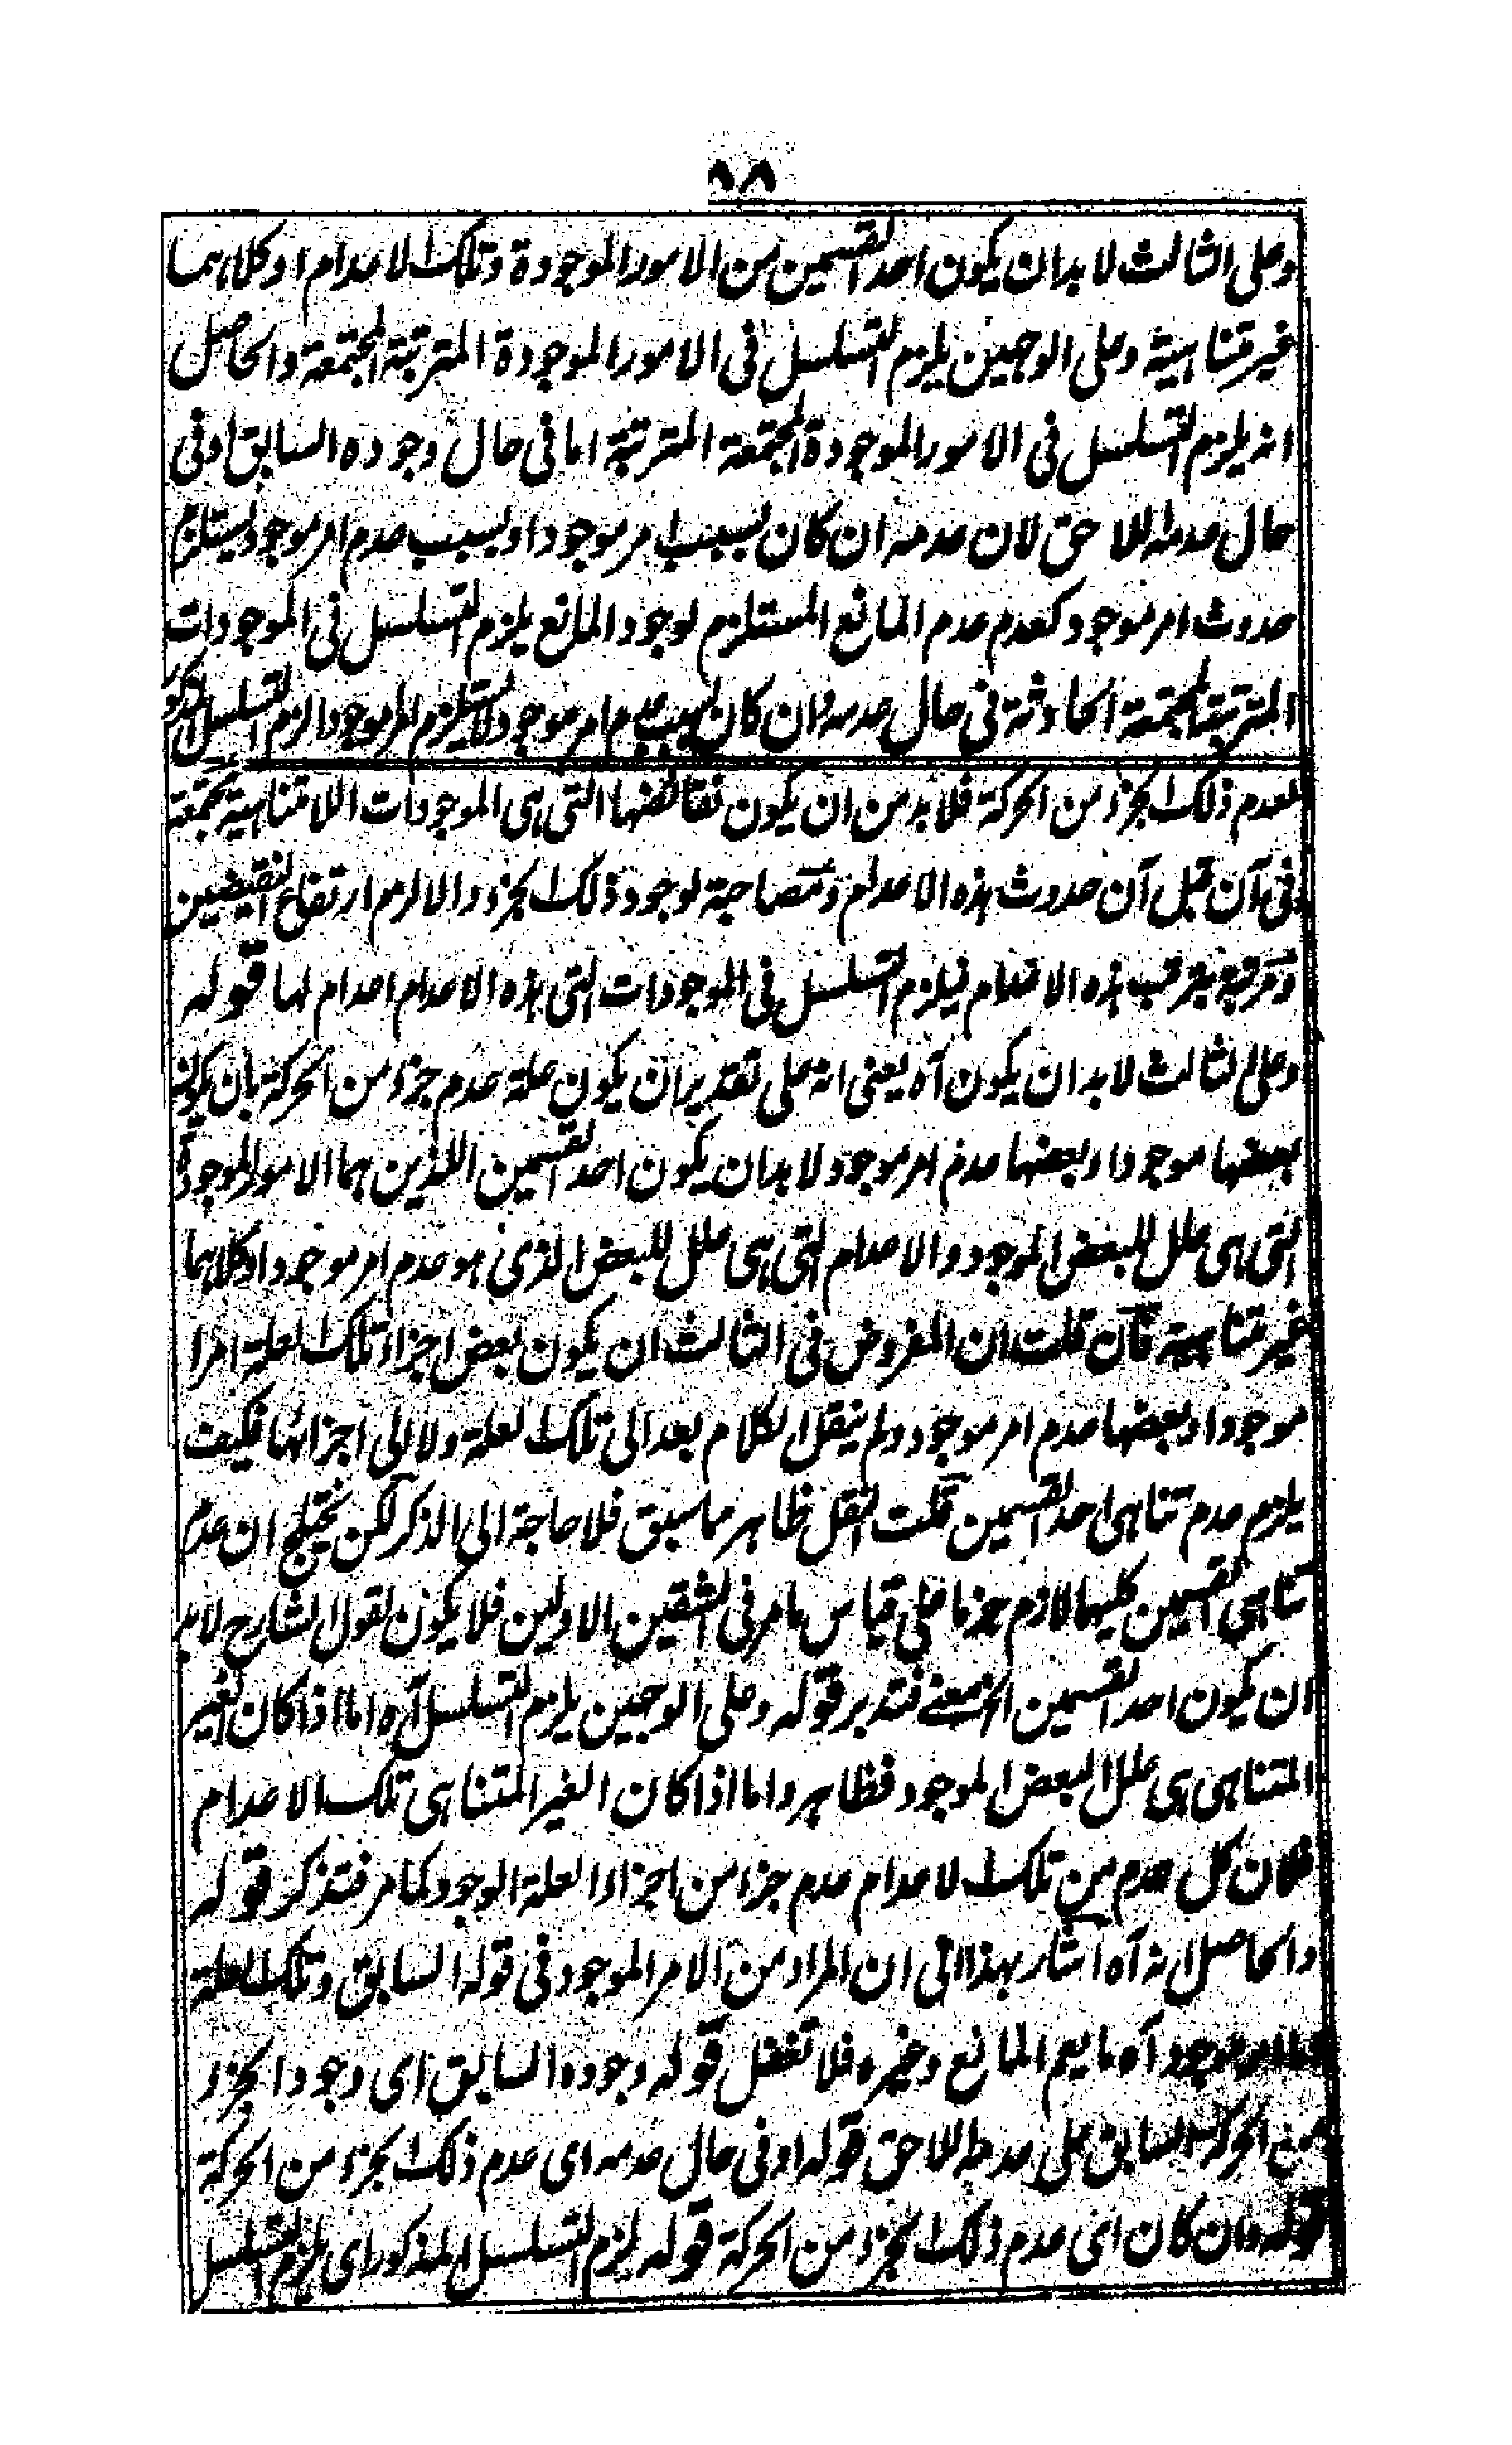 ٩٨
وعلى الثالث لا بد ان يكون احد القسمين من الامور الموجودة وتلك الاعدام او كلاهما
غير متناهية وعلى الوجهين يلزم التسلسل فى الامور الموجودة المترتبة المجتمعة والحاصل
انه يلزم التسلسل فى الامور الموجودة المجتمعة المترتبة اما فى حال وجوده السابق او فى
حال عدمه اللاحق لان عدمه ان كان بسبب امر موجود او بسبب عدم امر موجود يستلزم
حدوث امر موجود كعدم عدم المانع المستلزم لوجود المانع يلزم التسلسل فى الموجودات
المترتبة المجتمعة الحادثة فى حال عدمه وان كان بسبب عدم امر موجود لا يستلزم امر موجودا لزم التسلسل المذكور
لعدم ذلك الجزء من الحركة فلا بد من ان يكون نقائضها التى هى الموجودات اللامتناهية مجتمعة
فى آن قبل آن حدوث هذه الاعدام ومصاحبة لوجود ذلك الجزء والا لزم ارتفاع النقيضين
ومترتبة بترتب هذه الاعدام فيلزم التسلسل فى الموجودات التى هذه الاعدام اعدام لها قوله
وعلى الثالث لا بد ان يكون آه يعنى انه على تقدير ان يكون علة عدم جزء من الحركة بان يكون
بعضها موجودا وبعضها عدم امر موجود لا بد ان يكون احد القسمين اللذين هما الامور الموجودة
التى هى علل للبعض الموجود والاعدام التى هى علل للبعض الذى هو عدم امر موجود او كلاهما
غير متناهية فان قلت ان المفروض فى الثالث ان يكون بعض اجزاء تلك العلة امرا
موجودا وبعضها عدم امر موجود ولم ينقل الكلام بعد الى تلك العلة ولا الى اجزائها فكيف
يلزم عدم تناهى احد القسمين قلت النقل ظاهر مما سبق فلا حاجة الى الذكر لكن يختلج ان عدم
تناهى القسمين كليهما لازم جزما على قياس ما مر فى الشقين الاولين فلا يكون لقول الشارح لا بد
ان يكون احد القسمين الخ معنے فتدبر قوله وعلى الوجهين يلزم التسلسل آه اما اذا كان الغير
المتناهى هى علل البعض الموجود فظاهر واما اذا كان الغير المتناهى تلك الاعدام
فلان كل عدم من تلك الاعدام عدم جزء من اجزاء العلة الوجود كما مر فتذكر قوله
والحاصل انه آه اشار بهذا الى ان المراد من الامر الموجود فى قوله السابق وتلك العلة
اما امر موجود آه ما يعم المانع وغيره فلا تغفل قوله وجوده السابق اى وجود الجزء
من الحركة السابق على عدمه اللاحق قوله او فى حال عدمه اى عدم ذلك الجزء من الحركة
قوله وان كان اى عدم ذلك الجزء من الحركة قوله لزم التسلسل المذكور اى يلزم التسلسل